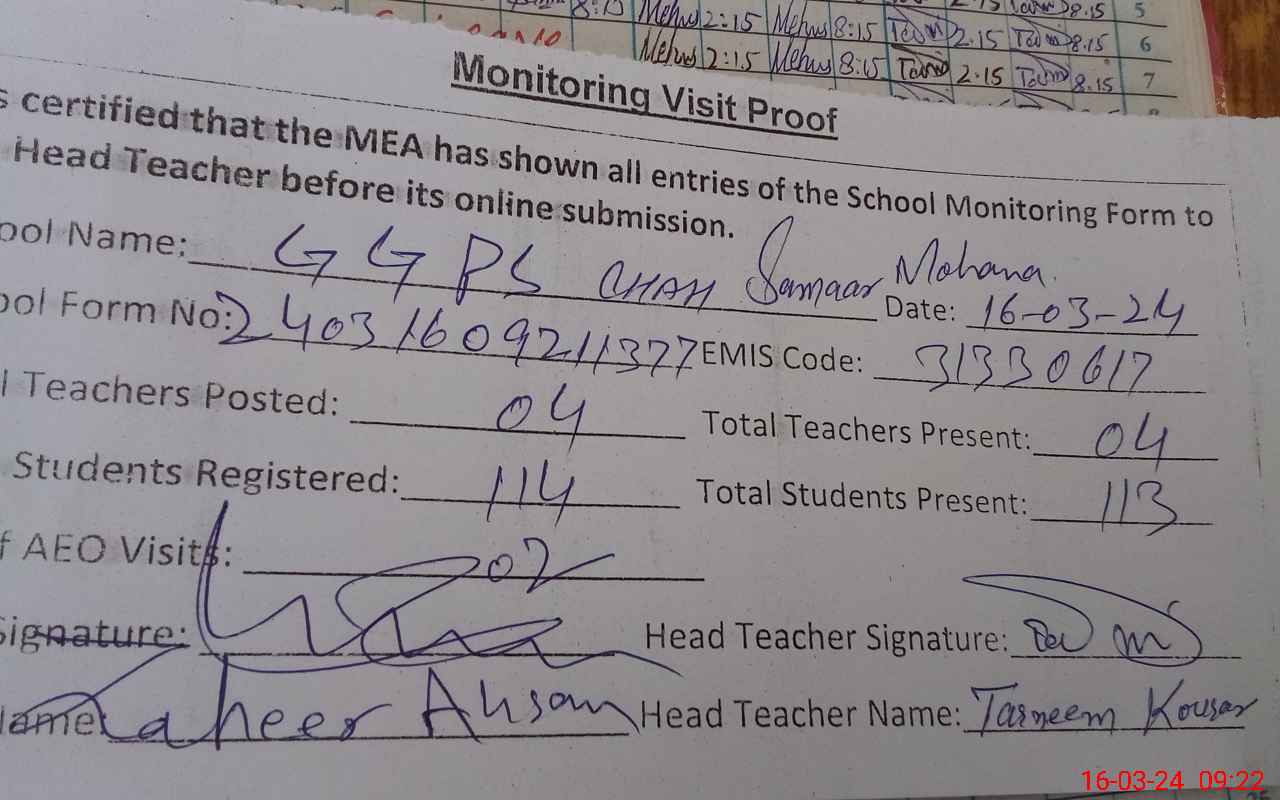 8:15 Mehus 2:15 Mehus 8:15 2.15 8.15 5
Mehus 2:15 Mehus 8:15 2.15 8.15 6
2.15 8.15 7
Monitoring Visit Proof
s certified that the MEA has shown all entries of the School Monitoring Form to
Head Teacher before its online submission.
ool Name: GGPS CHAH Samaar Mohana.
Date: 16-03-24
ool Form No: 24031609211377 EMIS Code: 31330617
l Teachers Posted: 04 Total Teachers Present: 04
Students Registered: 114 Total Students Present: 113
f AEO Visits: 02
Signature: Head Teacher Signature:
Name: Zaheer Ahsan Head Teacher Name: Tasneem Kousar
16-03-24 09:22